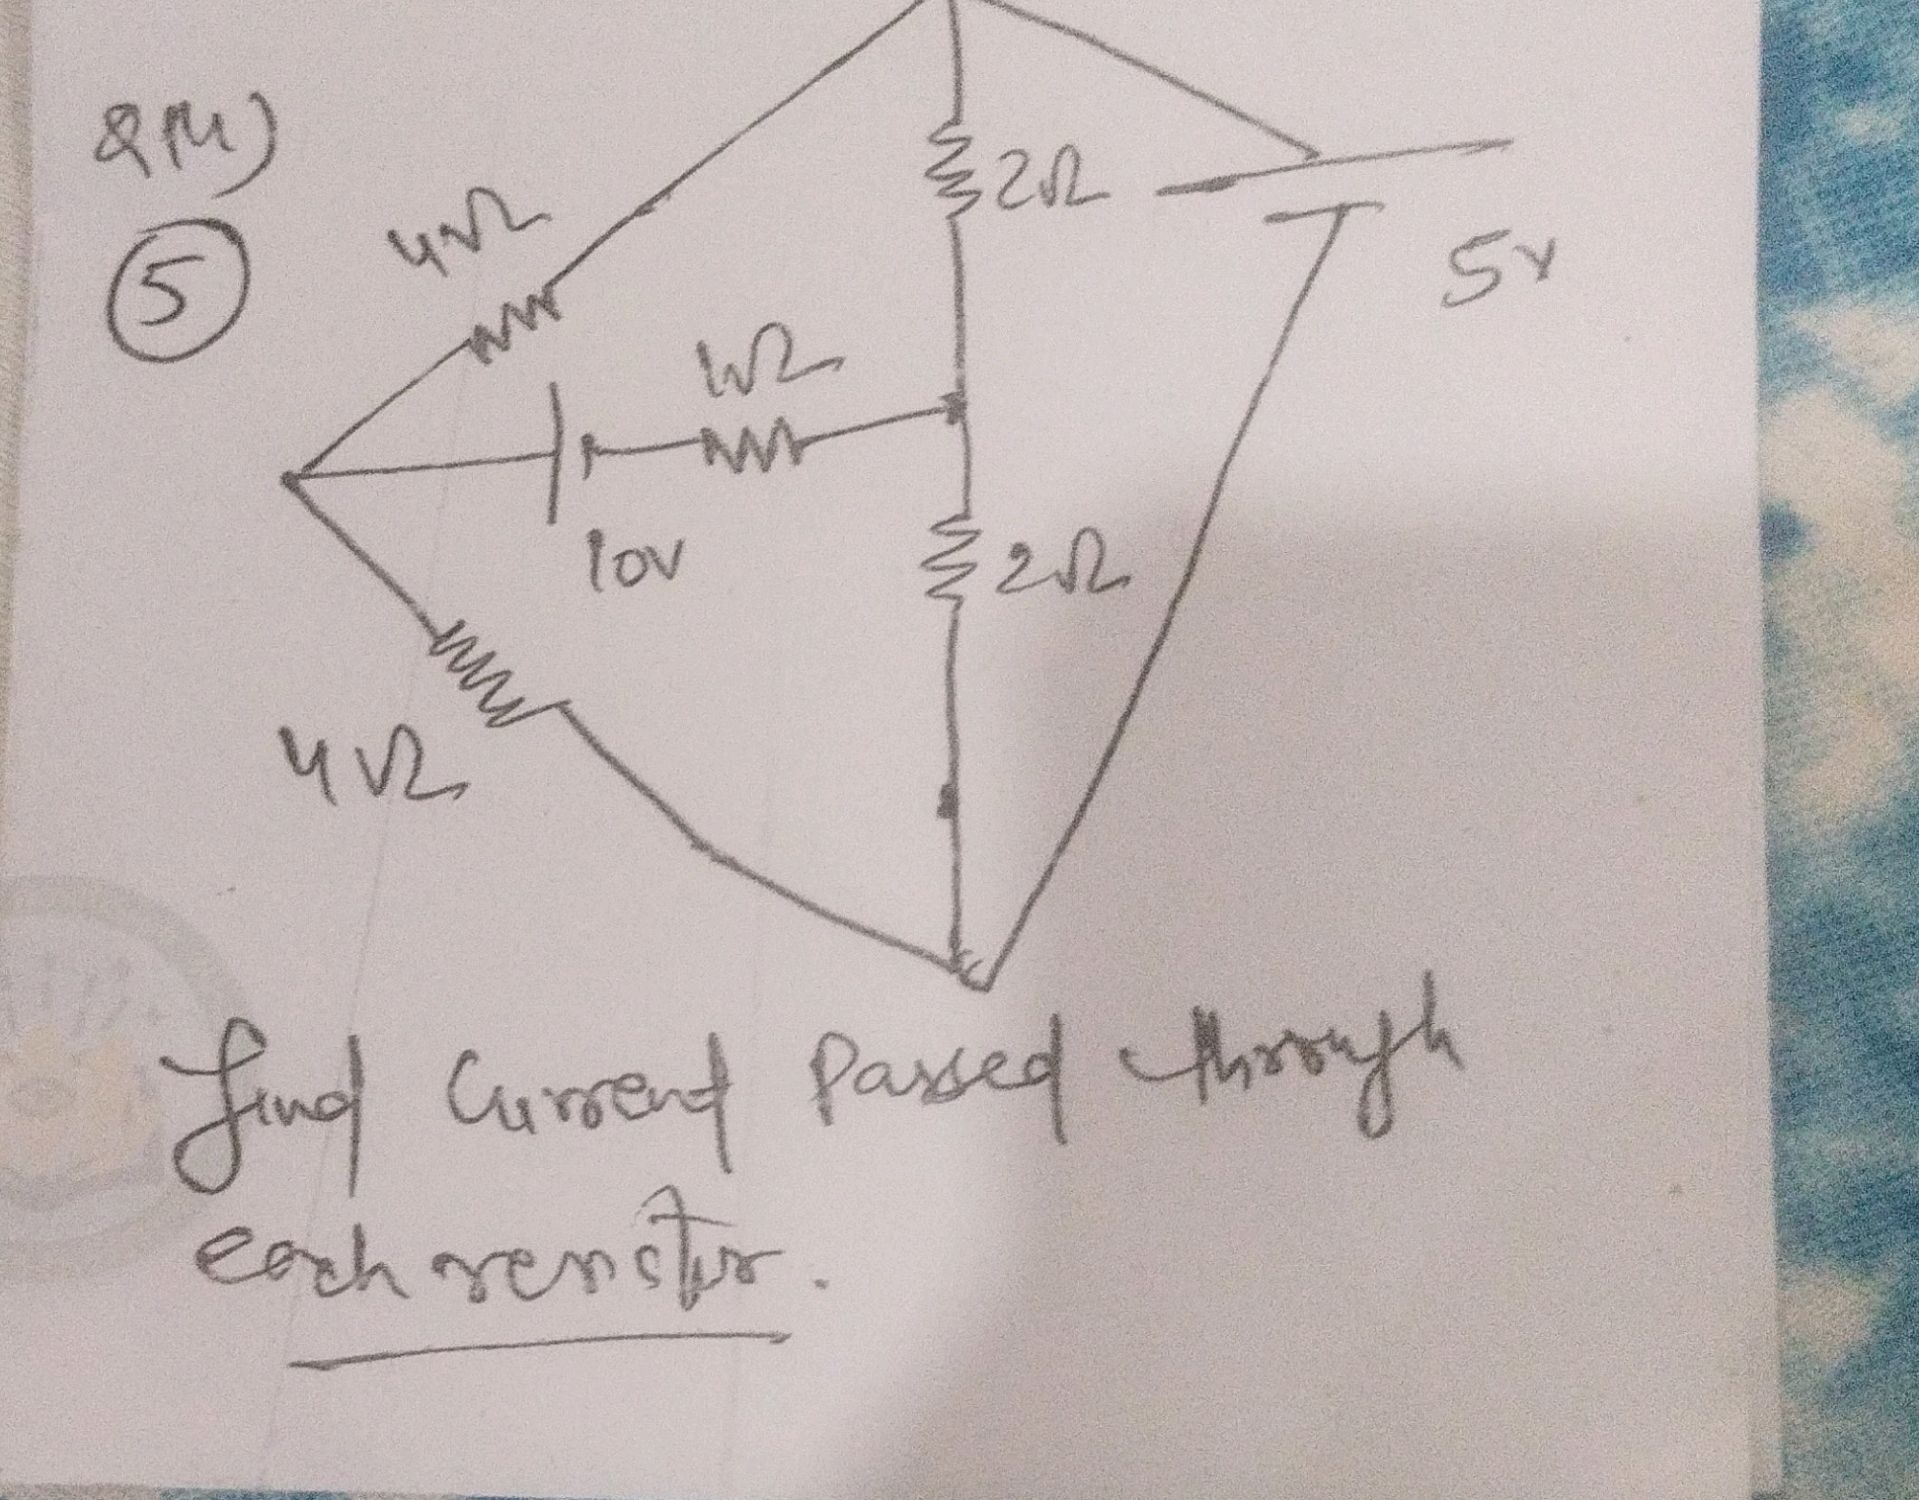 5
4Ω
2Ω
5v
1Ω
10v
2Ω
4Ω
find Current Passed through
each resistor.